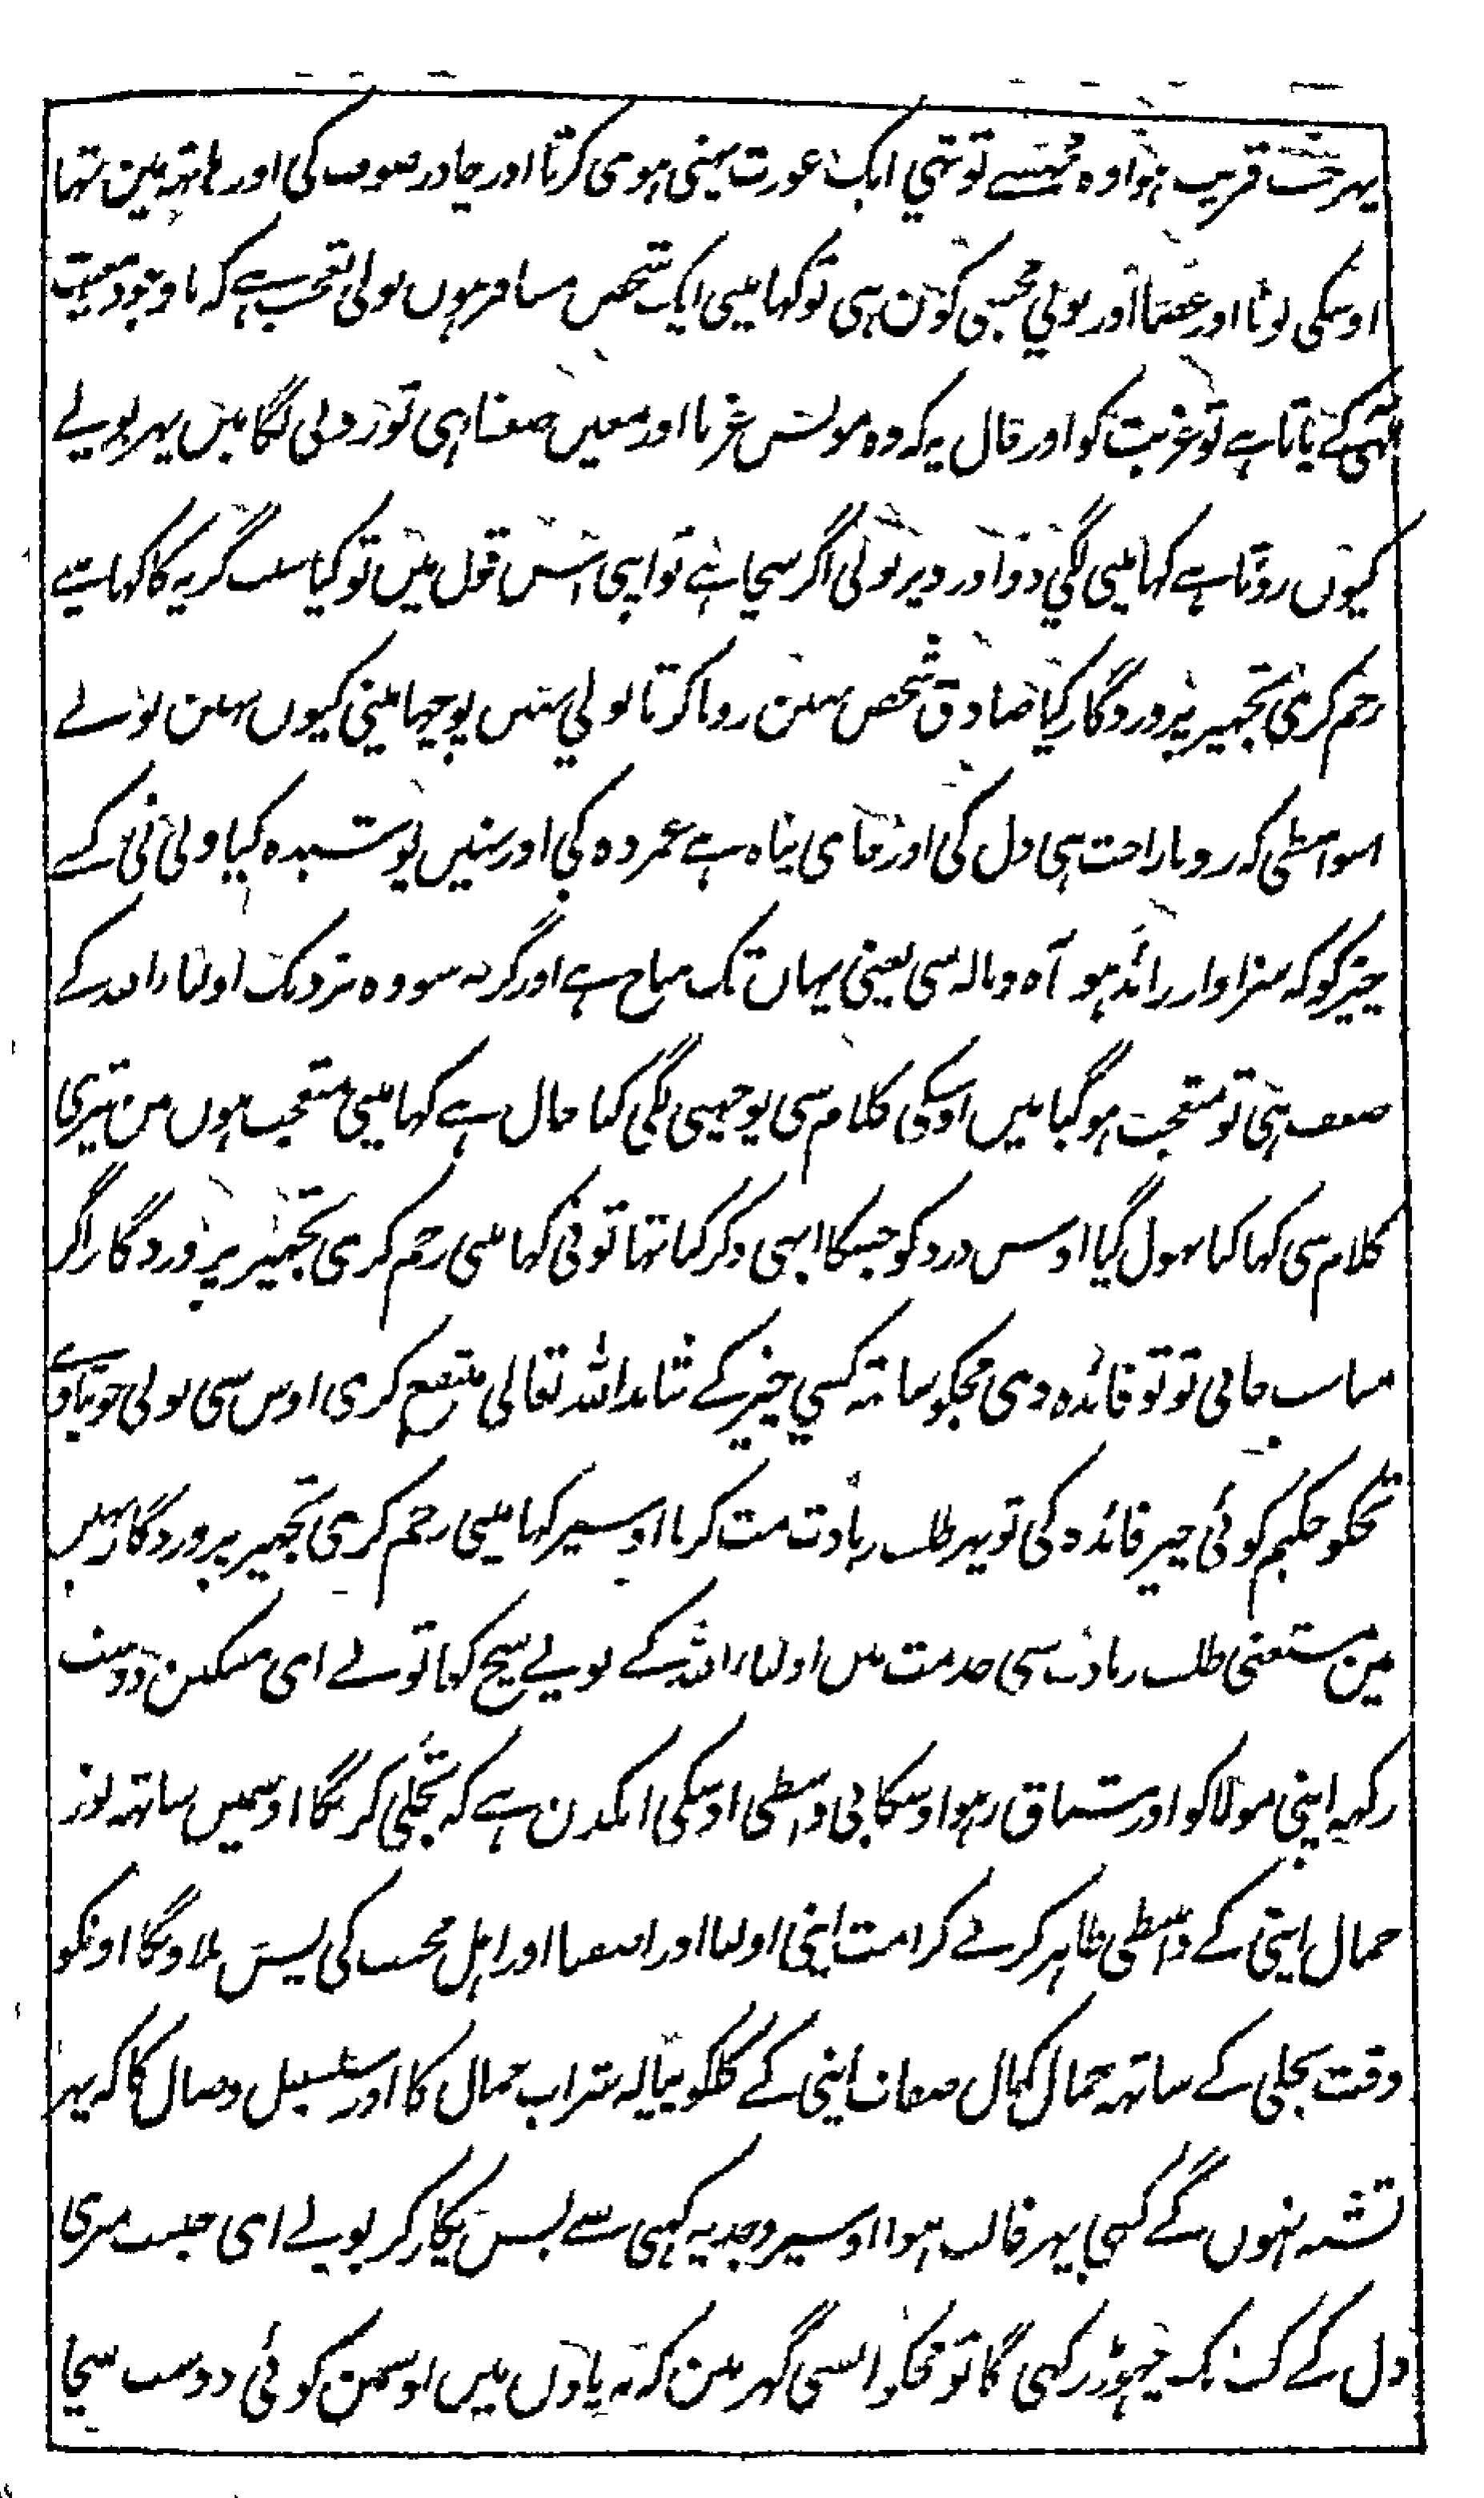 پہر جب قریب ہوا وہ مجھسے تو تہی ایک عورت پہنی ہوی کرتا اور چادر صوف کی اور ہاتہہ مین تہا
اوسکی لوٹا اور عصا اور بولی مجہی کون ہی تو کہا مینی ایک شخص مسافر ہوں بولی تعجب ہے کہ باوجود معیت
الہی کے پاتا ہے تو غربت کو اور حال یہ کہ وہ مونس غربا اور معین ضعفا ہی تو رونی لگا میں پہر بولے
کیوں روتا ہے کہا مینی لگی دوا درد پر بولی اگر سچا ہے تو اپنی اس قول میں تو کیا سبب گریہ کا کہا مینے
رحم کری تجہپر پروردگار کیا صادق شخص نہین رویا کرتا بولی نہیں پوچہا مینی کیوں نہین بولے
اسواسطی کہ رونا راحت ہی دل کی اور جای پناہ ہے غمزدہ کی اور نہیں پوشیدہ کیا دل نی کے
چیز کو کہ سزاوار زائد ہو آہ و نالہ سی یعنی یہاں تک مباح ہے اور گریہ سو وہ نزدیک اولیاء اللہ کے
ضعف ہی تو متعجب ہو گیا میں اوسکی کلام سی پوچہنی لگی کیا حال ہے کہا مینی متعجب ہوں مین تیری
کلام سی کہا کیا بہول گیا اوس درد کو جسکا ابہی ذکر کیا تہا تونی کہا مینی رحم کری تجہپر پروردگار اگر
مناسب جانی تو تو فائدہ دی مجکو ساتہہ کسی چیز کے شاید اللہ تعالی منتفع کری اوس سی بولی جو بتاوے
تجکو حکیم کوئی چیز فائدہ کی تو پہر طلب زیادت مت کرنا اوسپر کہا مینی رحم کری تجہپر پروردگار نہیں
مین مستغنی طلب زیادت سی خدمت میں اولیاء اللہ کے بولے سچ کہا تونے ای مسکین دوست
رکہہ اپنی مولا کو اور مشتاق رہو اوسکا پی واسطی اوسکی ایکدن ہے کہ تجلی کریگا اوسمیں ساتہہ نور
جمال اپنی کے واسطی ظاہر کرنے کرامت اپنی اولیا اور اصفیا اور اہل محبت کی پس پلاویگا اونکو
وقت تجلی کے ساتہہ جمال کمال صفات اپنی کے کلکو پیالہ شراب جمال کا اور سلسبیل وصال کا کہ پہر
تشنہ نہوں گے کبہی پہر غالب ہوا اوسپر وجد یہ کہنی سے پس پکار کر بولے ای حبیب میری
دل کے کب تک چہوڑ رکہی گا تو مجکو ایسی گہر مین کہ نہ پاوں میں اوسمین کوئی دوست سچا